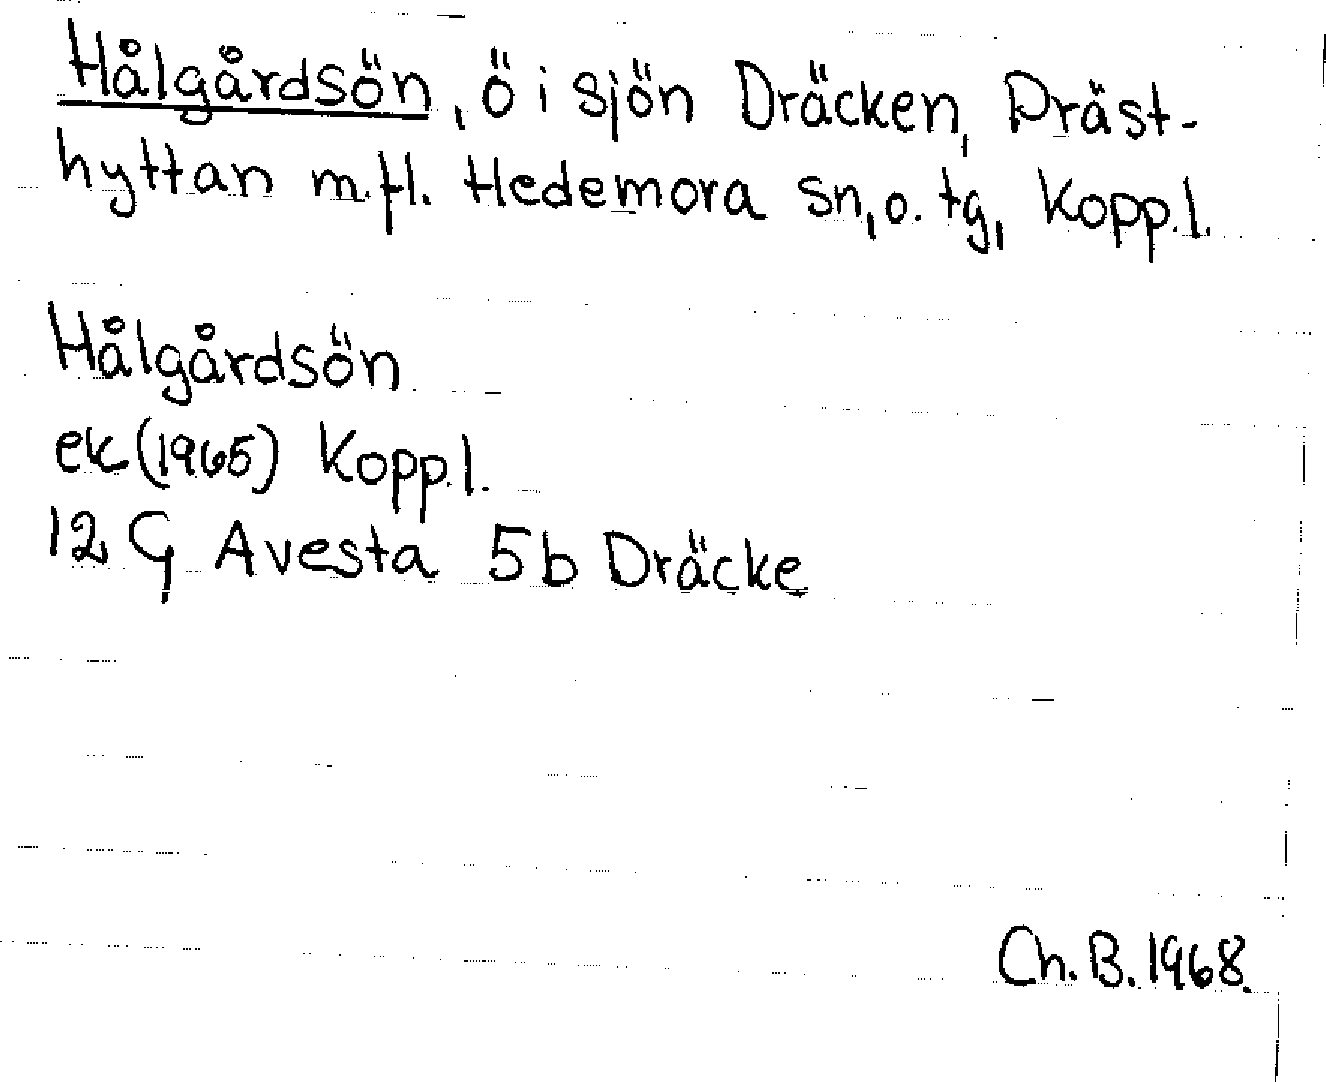 Hålgårdsön, ö i sjön Dräcken, Präst-
hyttan m.fl. Hedemora sn, o. tg, Kopp.l.
Hålgårdsön
ek (1965) Kopp.l.
12 G Avesta 5b Dräcke
Ch. B. 1968.